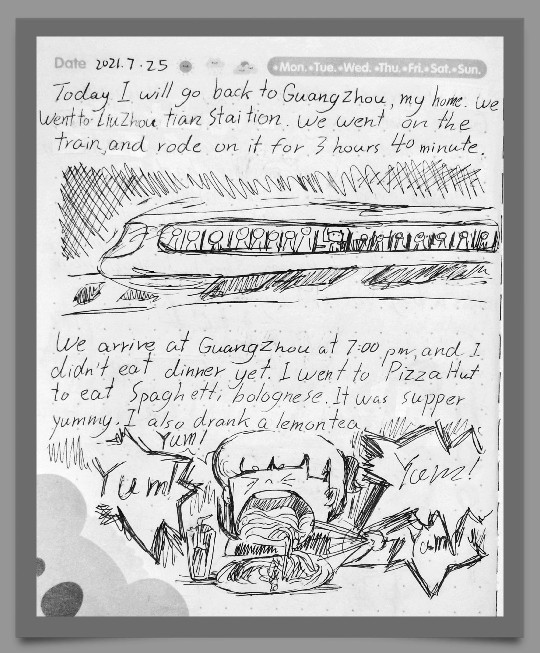 Date 2021.7.25
•Mon.•Tue.•Wed.•Thu.•Fri.•Sat.•Sun.
Today I will go back to Guangzhou, my home. We
went to LiuZhou tian Staition. We went on the
train, and rode on it for 3 hours 40 minute.
We arrive at Guangzhou at 7:00 pm, and I
didn't eat dinner yet. I went to Pizza Hut
to eat Spaghetti bolognese. It was supper
yummy. I also drank a lemontea.
Yum!
Yum!
Yum!
Yum!